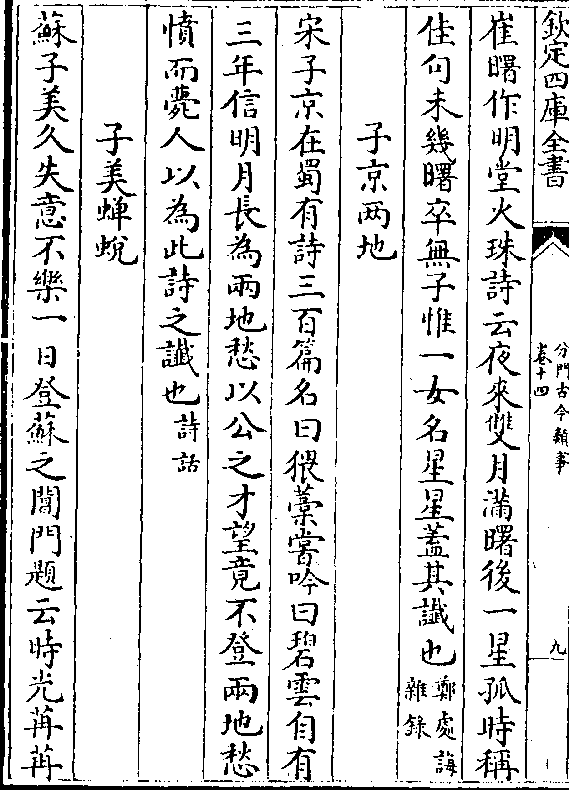 欽定四庫全書
分門古今類事
卷十四
九
崔曙作明堂火珠詩云夜來雙月滿曙後一星孤時稱
佳句未幾曙卒無子惟一女名星星蓋其讖也鄭處誨
雜錄
子京兩地
宋子京在蜀有詩三百篇名曰猥藁嘗吟曰碧雲自有
三年信明月長為兩地愁以公之才望竟不登兩地愁
憤而薨人以為此詩之讖也詩話
子美蟬蛻
蘇子美久失意不樂一日登蘇之閶門題云時光苒苒